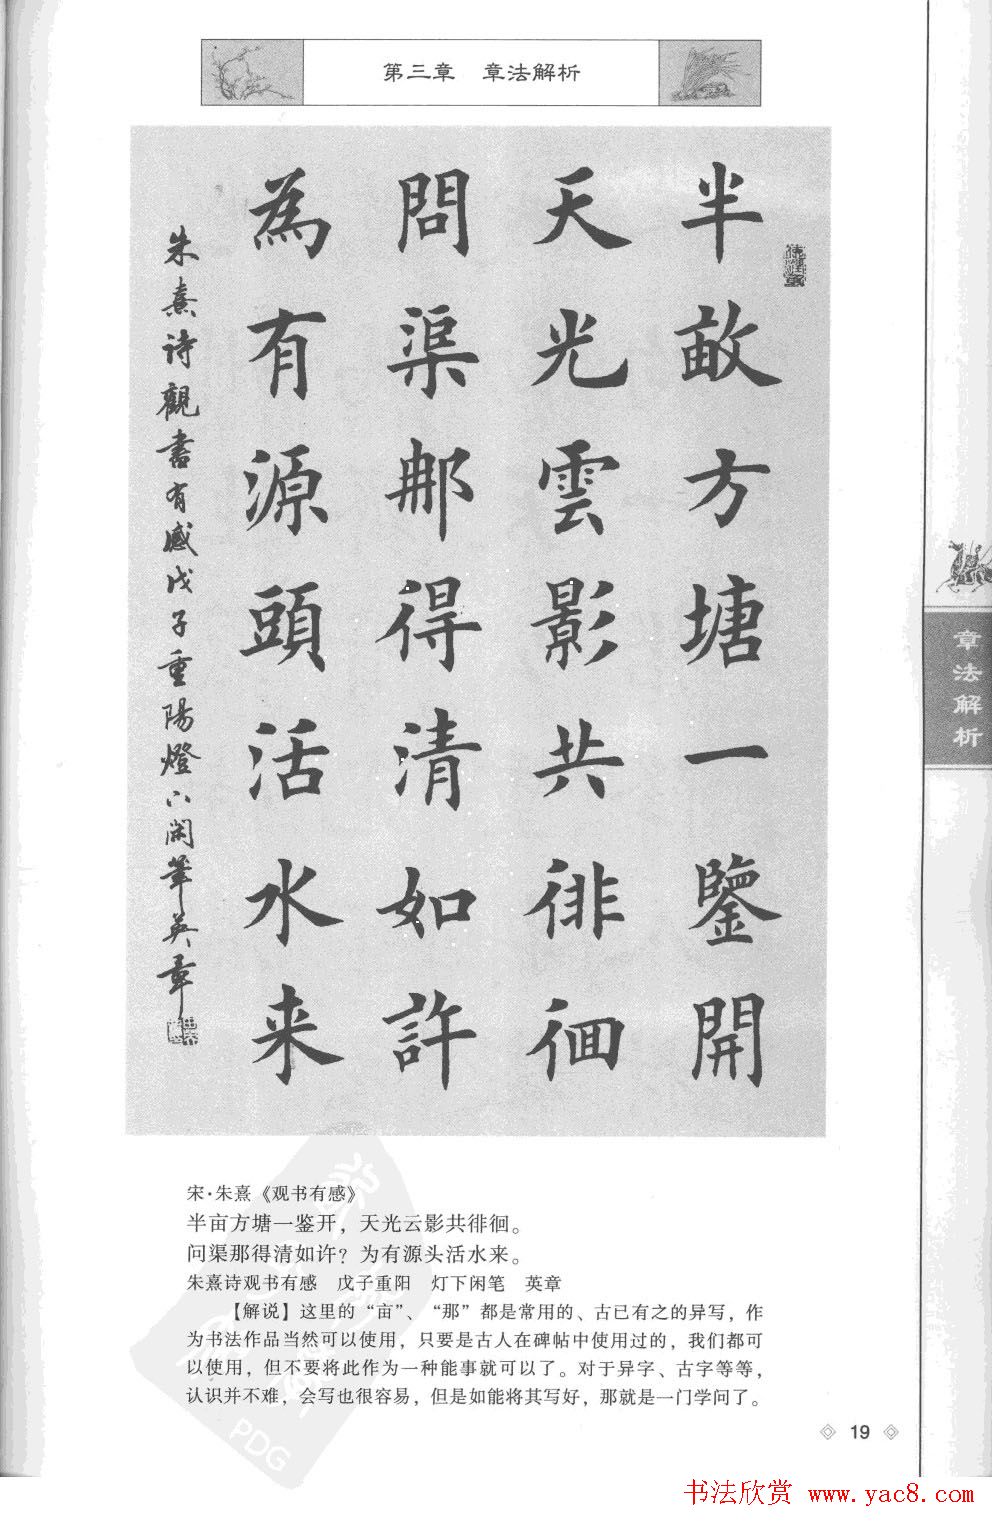 第三章 章法解析
半畝方塘一鑒開
天光雲影共徘徊
問渠那得清如許
為有源頭活水来
朱熹诗觀書有感戊子重陽燈下閑筆英章
章法解析
宋·朱熹《观书有感》
半亩方塘一鉴开，天光云影共徘徊。
问渠那得清如许？为有源头活水来。
朱熹诗观书有感 戊子重阳 灯下闲笔 英章
【解说】这里的“亩”、“那”都是常用的、古已有之的异写，作
为书法作品当然可以使用，只要是古人在碑帖中使用过的，我们都可
以使用，但不要将此作为一种能事就可以了。对于异字、古字等等，
认识并不难，会写也很容易，但是如能将其写好，那就是一门学问了。
19
PDG
书法欣赏 www.yac8.com